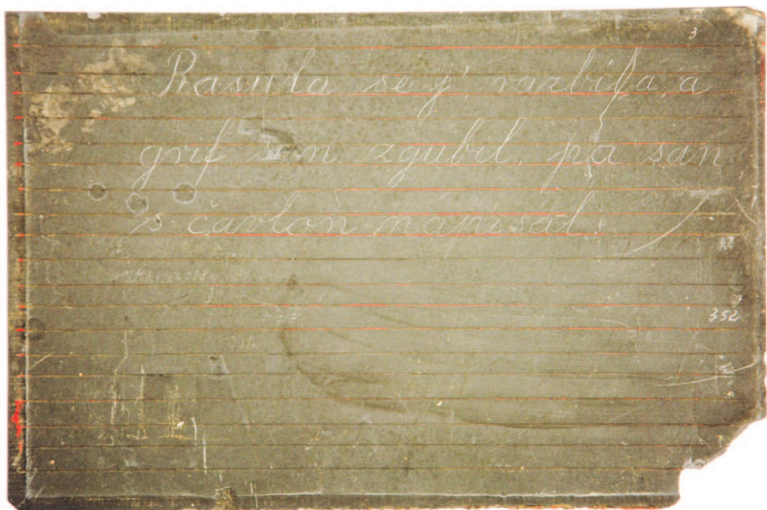 3
Rasula se j' razbila, a
grif san zgubil, pa san
's čavlon napisal.
352